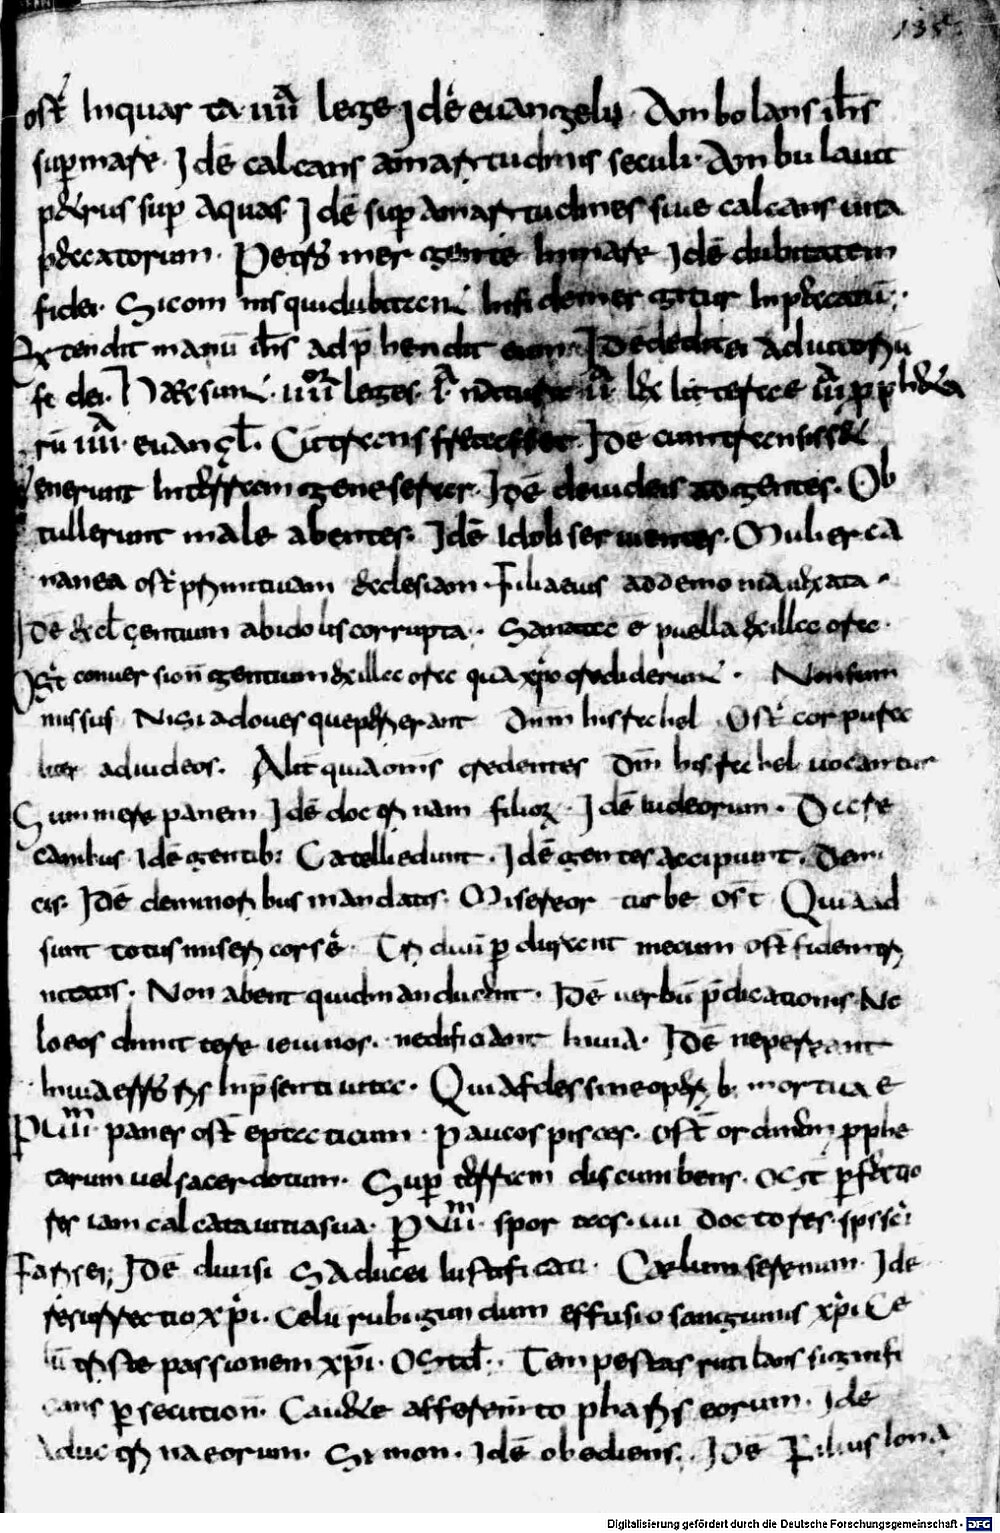 135
ost̄ Inquar ta uiii lege Idē euangelii Ambolans ih̄s
sup̄ mare. Idē calcans amaritudinis seculi. Ambulauit
petrus sup̄ aquas Idē sup̄ amaritudines siue calcans uita
peccatorum. mergente In mare Idē dubitatem
fidei. Sicom nis quidubitaten Infidemergitur In peccatū.
Extendit manū ih̄s adp̄hendit eum Idē dedit ei aductoriū
fidei. leges. lex littere
rū euangl̄. Idē cum transisset
uenerunt In terram geneserar. Idē deuideus adgentes. Ob
tullerunt male abentes. Idē Idoli seruientes. Mulier ca
nanea ost̄ primitiuam ecclesiam. Filiaeius addemonia uexata.
Idē ecl̄ gentium abidolis corrupta. Sanata ē puella exilla ora.
Ost̄ conuersion̄ gentium exilla ora qua xp̄o crediderunt. Nonsum
missus Nisi adoues queperierant dum Israhel Ost̄ corpura
liter adiudeos. Alit̄ quiaom̄s credentes dm̄ Israhel uocantur
Summere panem Idē docrinam filioꝝ. Idē iudeorum. Dare
canibus Idē gentib: Catelliedunt. Idē gentes accipiunt. Dem
cis. Idē deminoribus mandatis. Misereor turbe ost̄ Quiaad
sunt totus misericors ē. Triduū p̄durant mecum ost̄ fidemtri
nitatis. Non abent quidmanducent. Idē uerbū p̄dicationis. Ne
loeos dimittere ieiunos. nedificiant Inuia. Idē nepereant
Inuia erroris Inp̄senti uita. Quiafides sineoperib; mortua ē
panes ost̄ epteticum. Paucospisces. ost̄ ordinem pphe
tarum uelsacerdotum. Sup̄ terram discumbens. Ost̄ p̄fectio
res iam calcata uitiasua. sportas. uii doctores. sp̄s sc̄i
Farisei; Idē diuisi Saducei Iustificati. Caelum serenum. Idē
resurrectio xp̄i. Celū rubigundum effusio sanguinis xp̄i Ce
lū triste passionem xp̄i. Ostd̄. Tempestas rutilans signifi
cans p̄secution̄. Cauete afferminto phariseorum. Idē
aductrinaeorum. Simon. Idē obediens. Idē Filius Iona
Digitalisierung gefördert durch die Deutsche Forschungsgemeinschaft - DFG